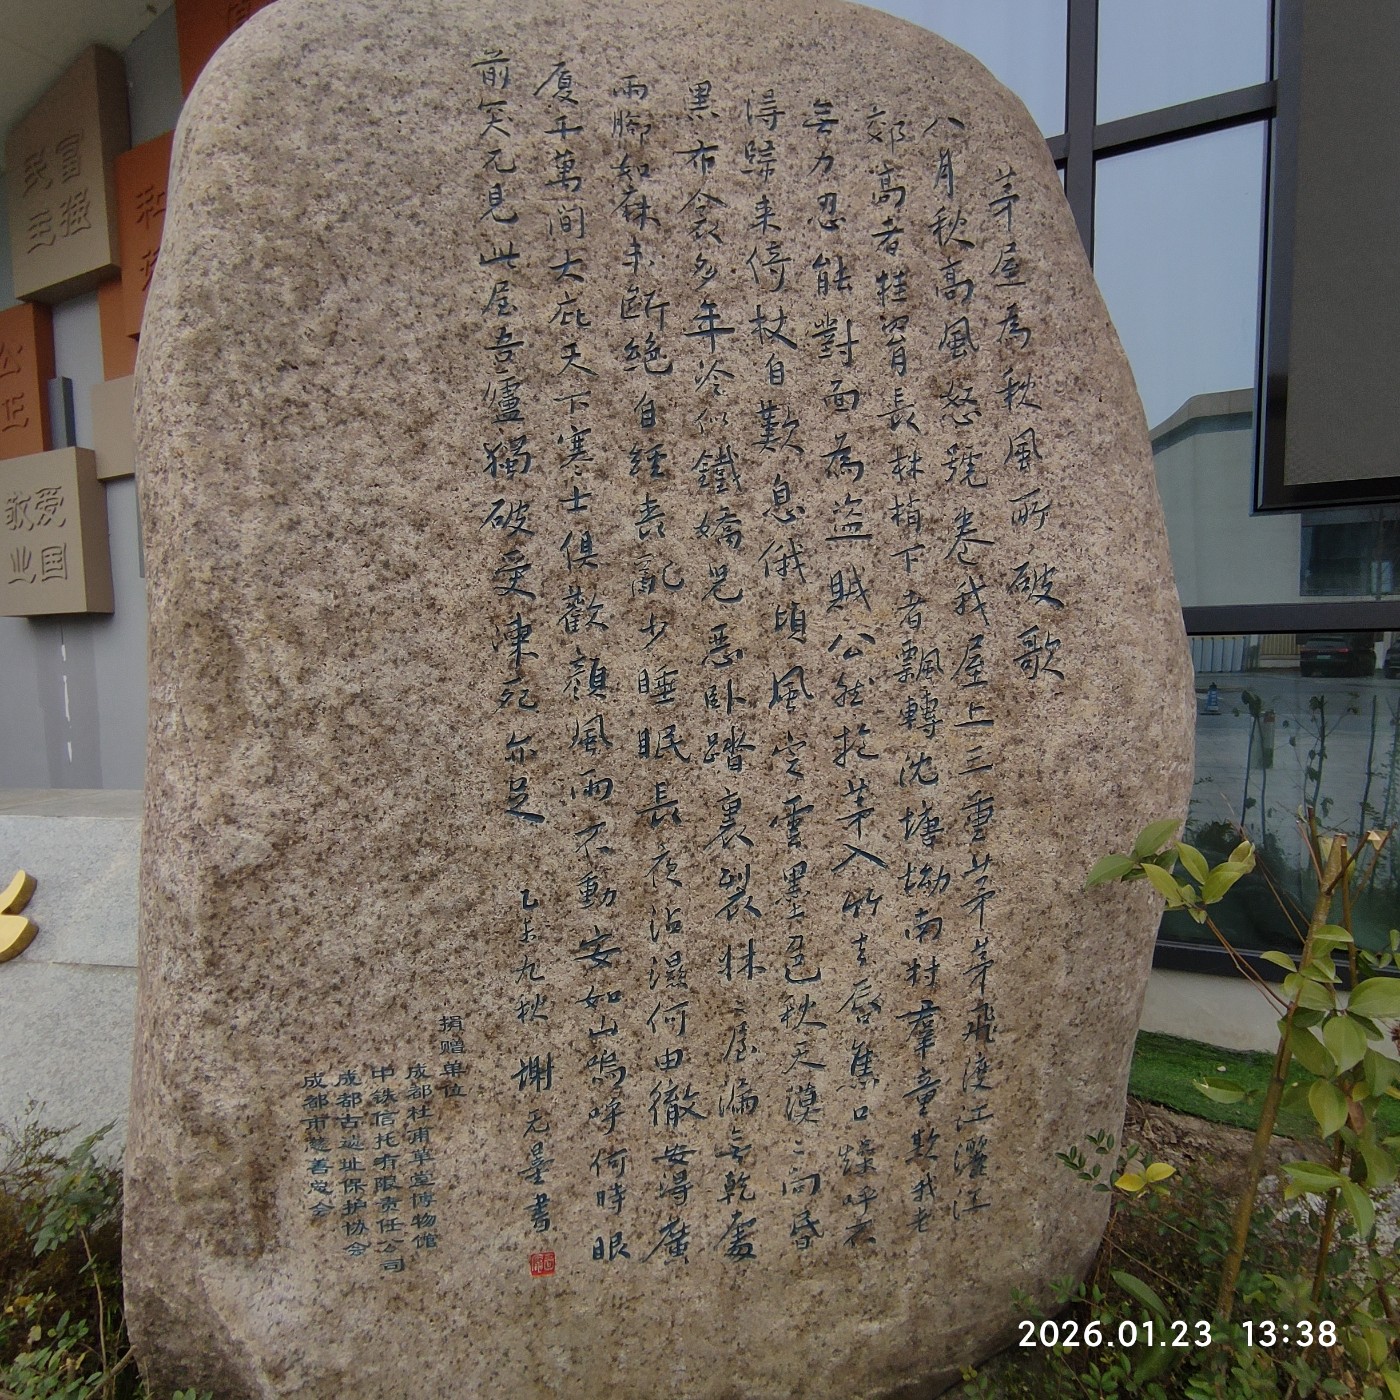 茅屋為秋風所破歌
八月秋高風怒號卷我屋上三重茅茅飛渡江灑江
郊高者挂罥長林梢下者飄轉沈塘坳南村羣童欺我老
無力忍能對面為盜賊公然抱茅入竹去唇焦口燥呼不
得歸来倚杖自歎息俄頃風定雲墨色秋天漠〻向昏
黑布衾多年冷似鐵嬌兒惡卧踏裏裂牀〻屋漏無乾處
雨脚如麻未斷絶自經喪亂少睡眠長夜沾濕何由徹安得廣
厦千萬間大庇天下寒士俱歡顔風雨不動安如山嗚呼何時眼
前突兀見此屋吾廬獨破受凍死亦足 乙未九秋 謝无量書
捐赠单位
成都杜甫草堂博物馆
中铁信托有限责任公司
成都古遗址保护协会
成都市慈善总会
富强
民主
和
公正
爱国
敬业
2026.01.23 13:38